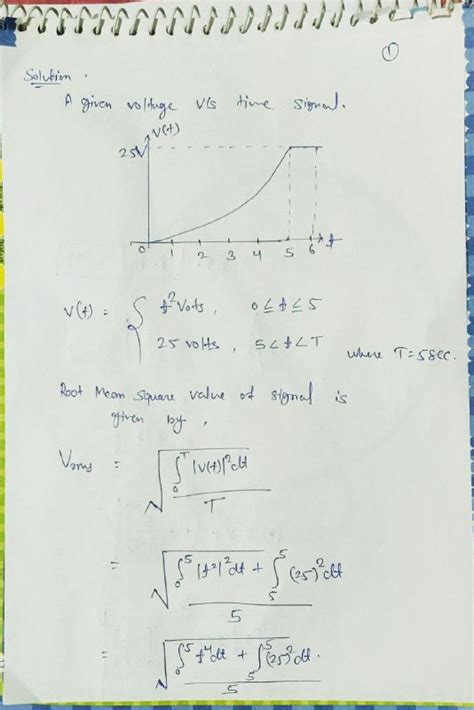 ①
Solution.
A given voltage v/s time signal.
V(t)
25V
0 1 2 3 4 5 6 t
V(t) = { t² Volts, 0 ≤ t ≤ 5
25 volts, 5 < t < T
where T = 5 sec.
Root Mean Square value of signal is
given by,
Vrms = √(∫₀ᵀ |V(t)|² dt / T)
= √((∫₀⁵ |t²|² dt + ∫₅⁵ (25)² dt) / 5)
= √((∫₀⁵ t⁴ dt + ∫₅⁵ (25)² dt.) / 5)